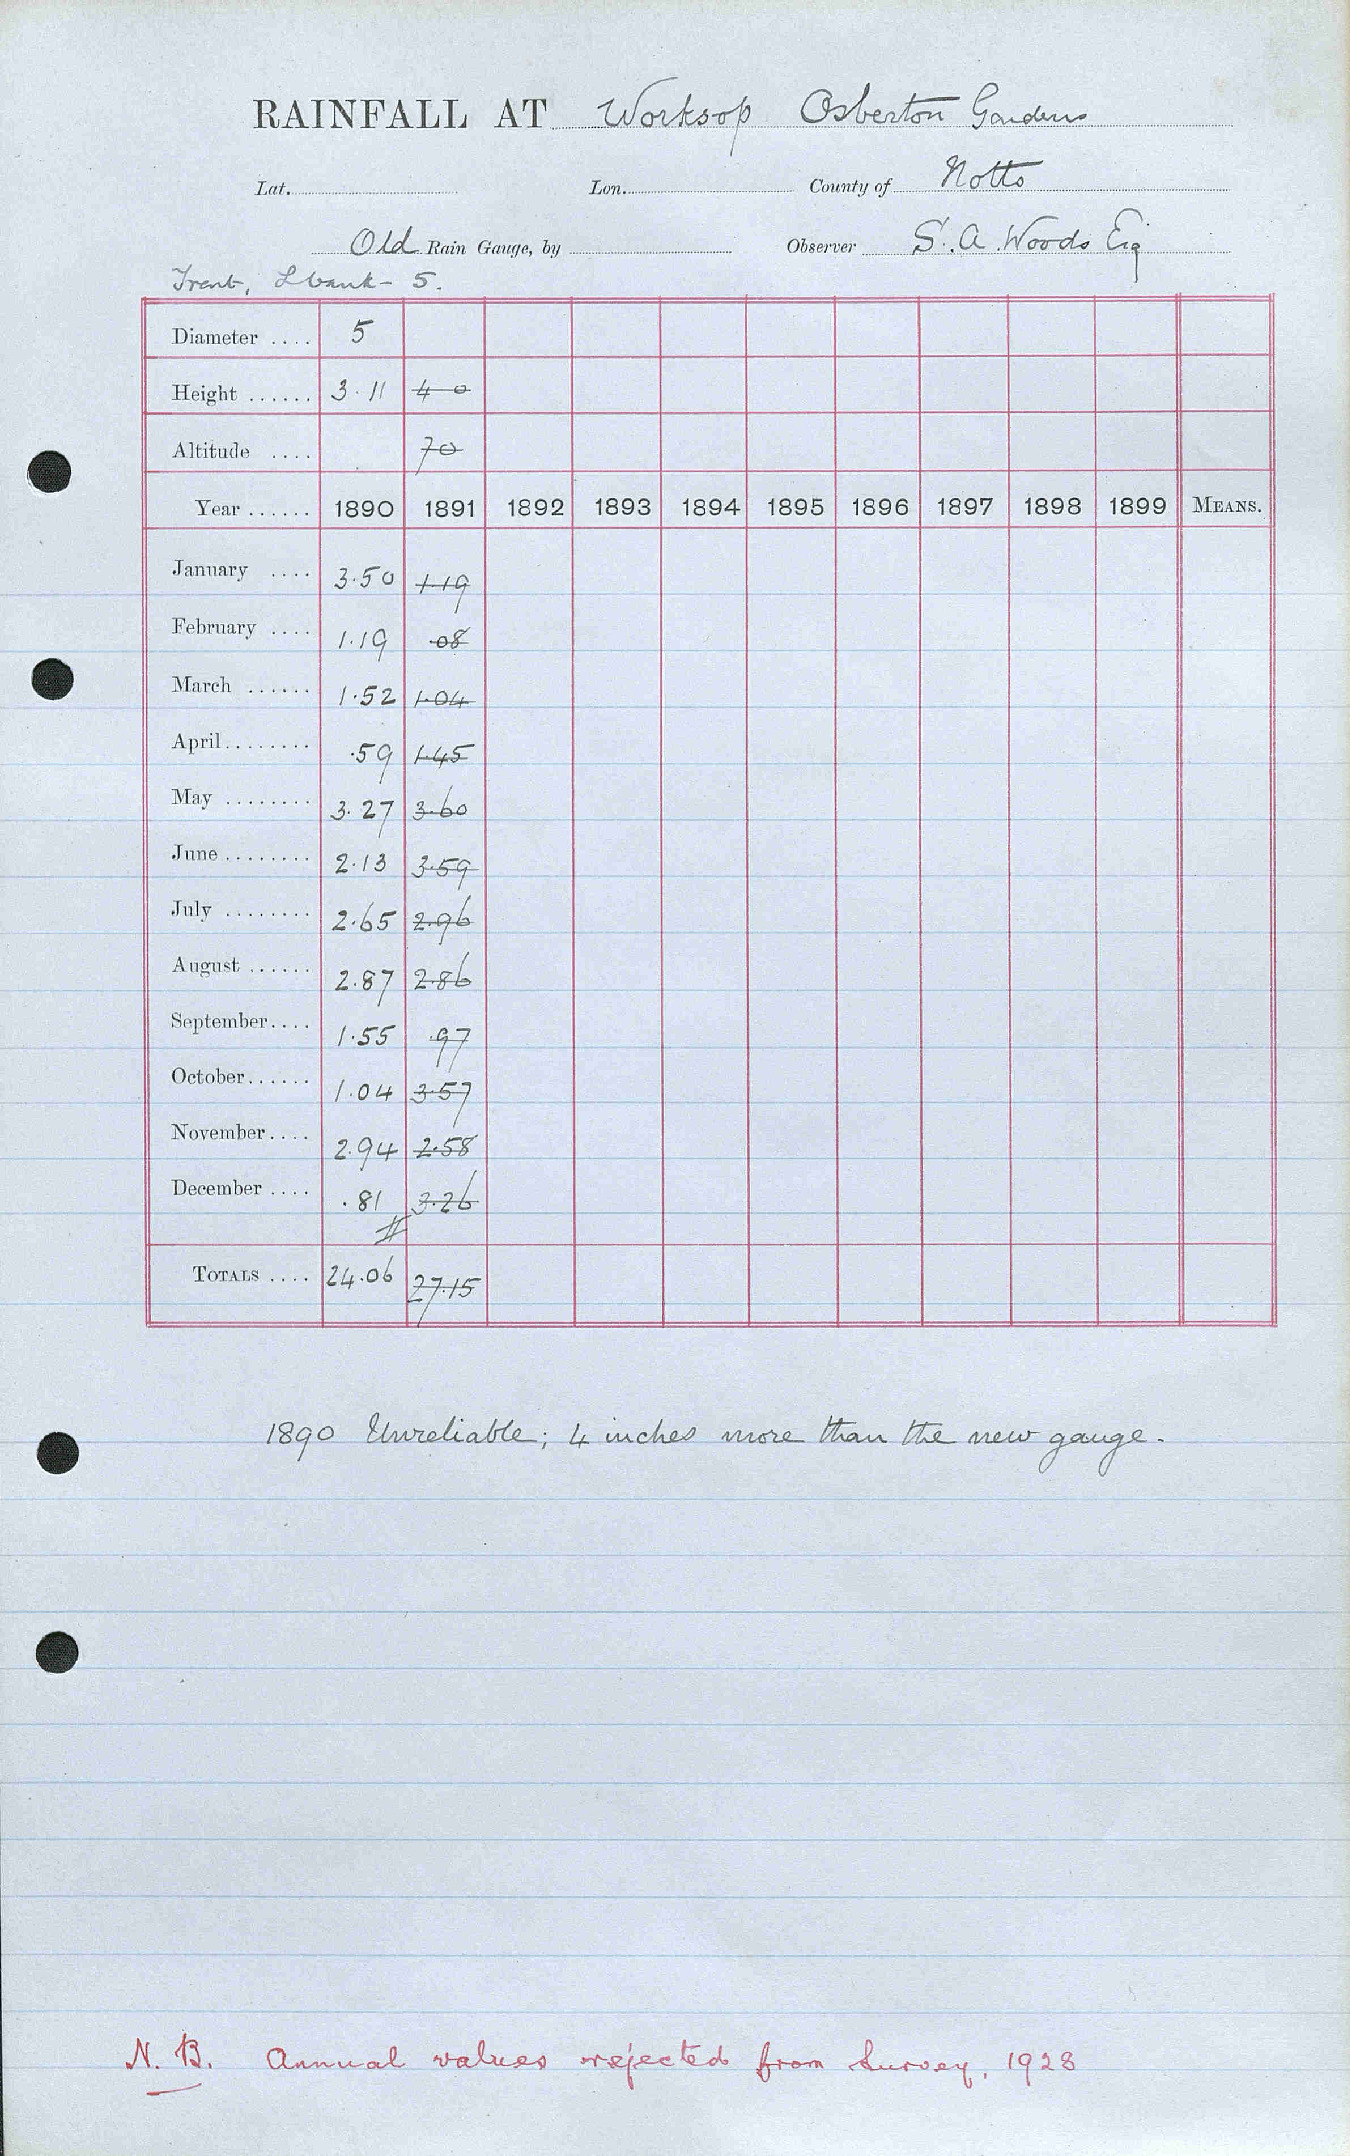 RAINFALL AT Worksop Osberton Gardens
Lat. Lon. County of Notts
Old Rain Gauge, by Observer S. A. Woods Esq
Trent, L bank - 5.
Diameter .... 5
Height ...... 3.11 4 0
Altitude .... 70
Year ...... 1890 1891 1892 1893 1894 1895 1896 1897 1898 1899 MEANS.
January .... 3.50 1.19
February .... 1.19 .08
March ...... 1.52 1.04
April ........ .59 1.45
May ........ 3.27 3.60
June ........ 2.13 3.59
July ........ 2.65 2.96
August ...... 2.87 2.86
September .... 1.55 .97
October ...... 1.04 3.57
November .... 2.94 2.58
December .... .81 3.26
TOTALS .... 24.06 27.15
1890 Unreliable; 4 inches more than the new gauge.
N. B. Annual values rejected from Survey, 1928